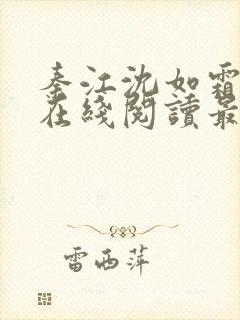 秦江沈如霜
在綫閱讀最
雷西萍